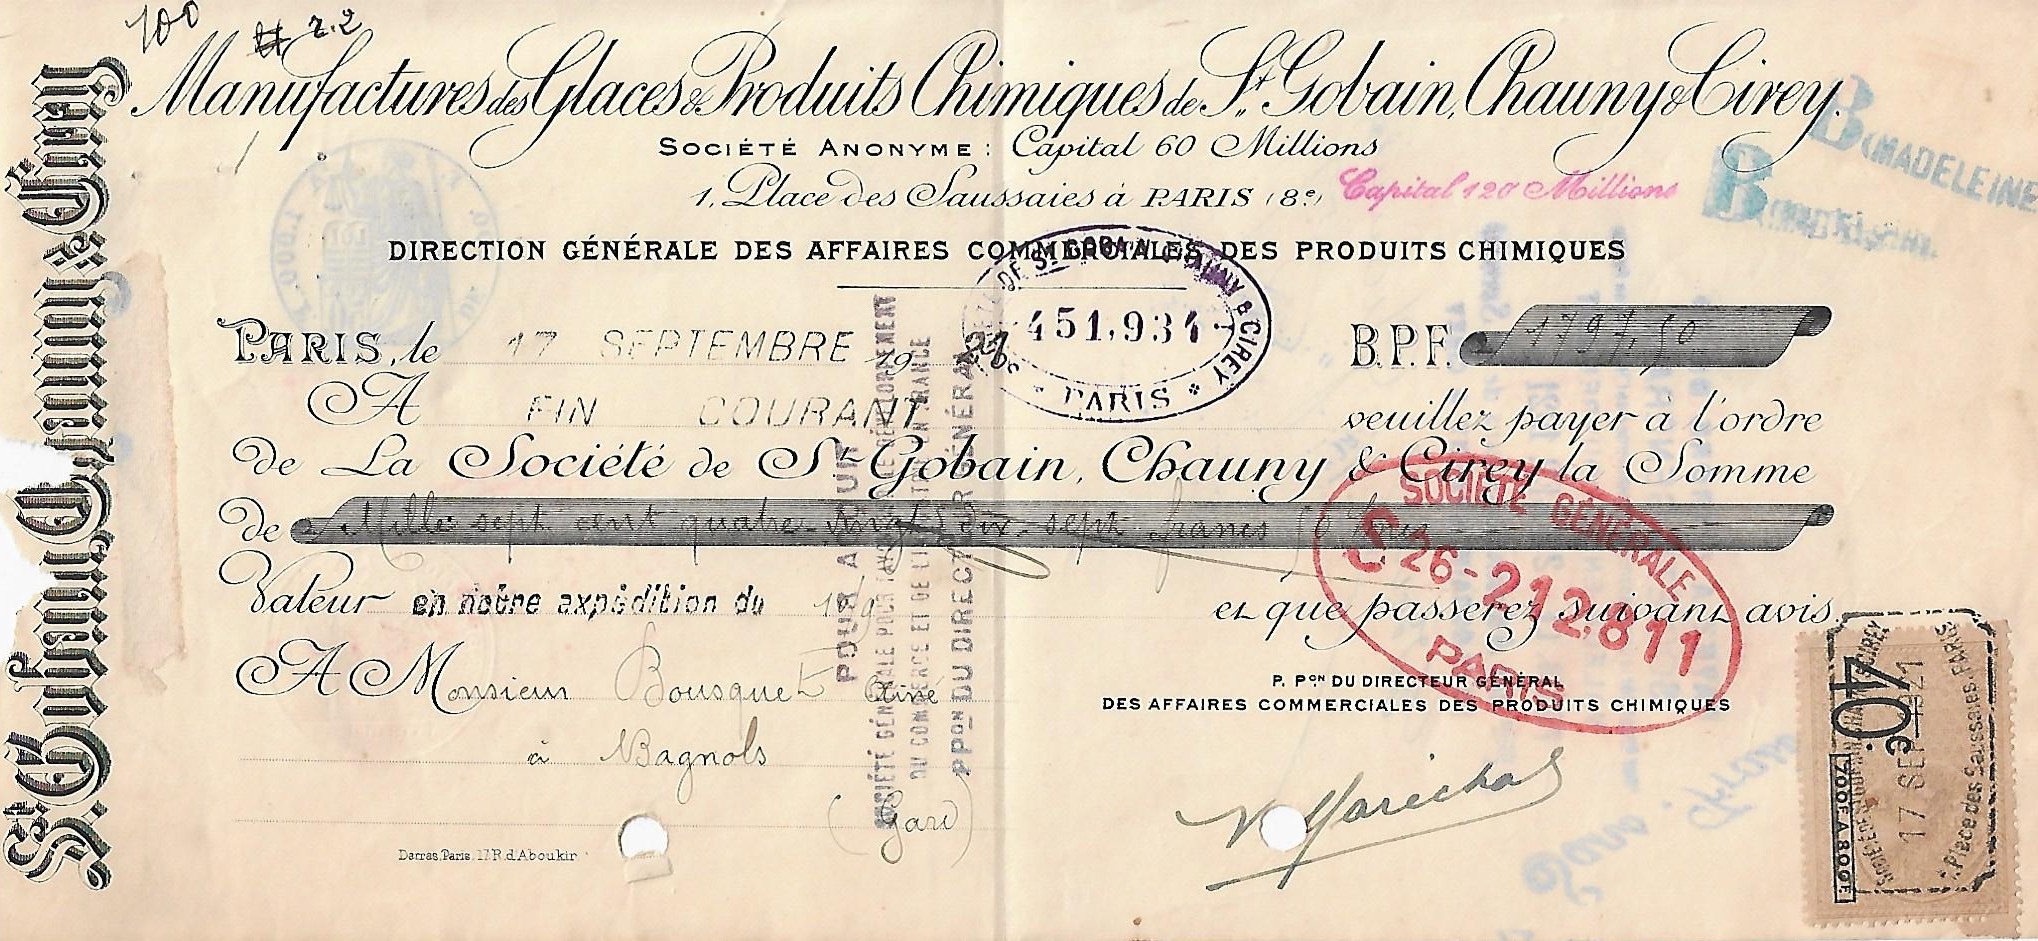 100
2.2
Manufactures des Glaces & Produits Chimiques de St. Gobain, Chauny & Cirey.
SOCIÉTÉ ANONYME : Capital 60 Millions
1, Place des Saussaies à PARIS (8e) Capital 120 Millions
B (MADELEINE
B
DIRECTION GÉNÉRALE DES AFFAIRES COMMERCIALES DES PRODUITS CHIMIQUES
DE St GOBAIN CHAUNY & CIREY
451,934
PARIS
PARIS, le 17 SEPTEMBRE 1921
B.P.F. 1797,50
A FIN COURANT veuillez payer à l'ordre
de La Société de St Gobain, Chauny & Cirey la Somme
de Mille sept cent quatre-vingt dix-sept francs 50
Valeur en notre expédition du et que passerez suivant avis.
A Monsieur Bousquet Ainé
à Bagnols
(Gard)
P. PON DU DIRECTEUR GÉNÉRAL
DES AFFAIRES COMMERCIALES DES PRODUITS CHIMIQUES
Marechal
Darras, Paris, 17 R. d'Aboukir
St Gobain Chauny & Cirey
POUR A
SOCIÉTÉ GÉNÉRALE POUR FAVORISER LE DÉVELOPPEMENT
DU COMMERCE ET DE L'INDUSTRIE EN FRANCE
PPON DU DIRECTEUR GÉNÉRAL
SOCIÉTÉ GÉNÉRALE
S 26-212,811
PARIS
40c
700F A 800F
17 SEPT 1921
1, Place des Saussaies, PARIS